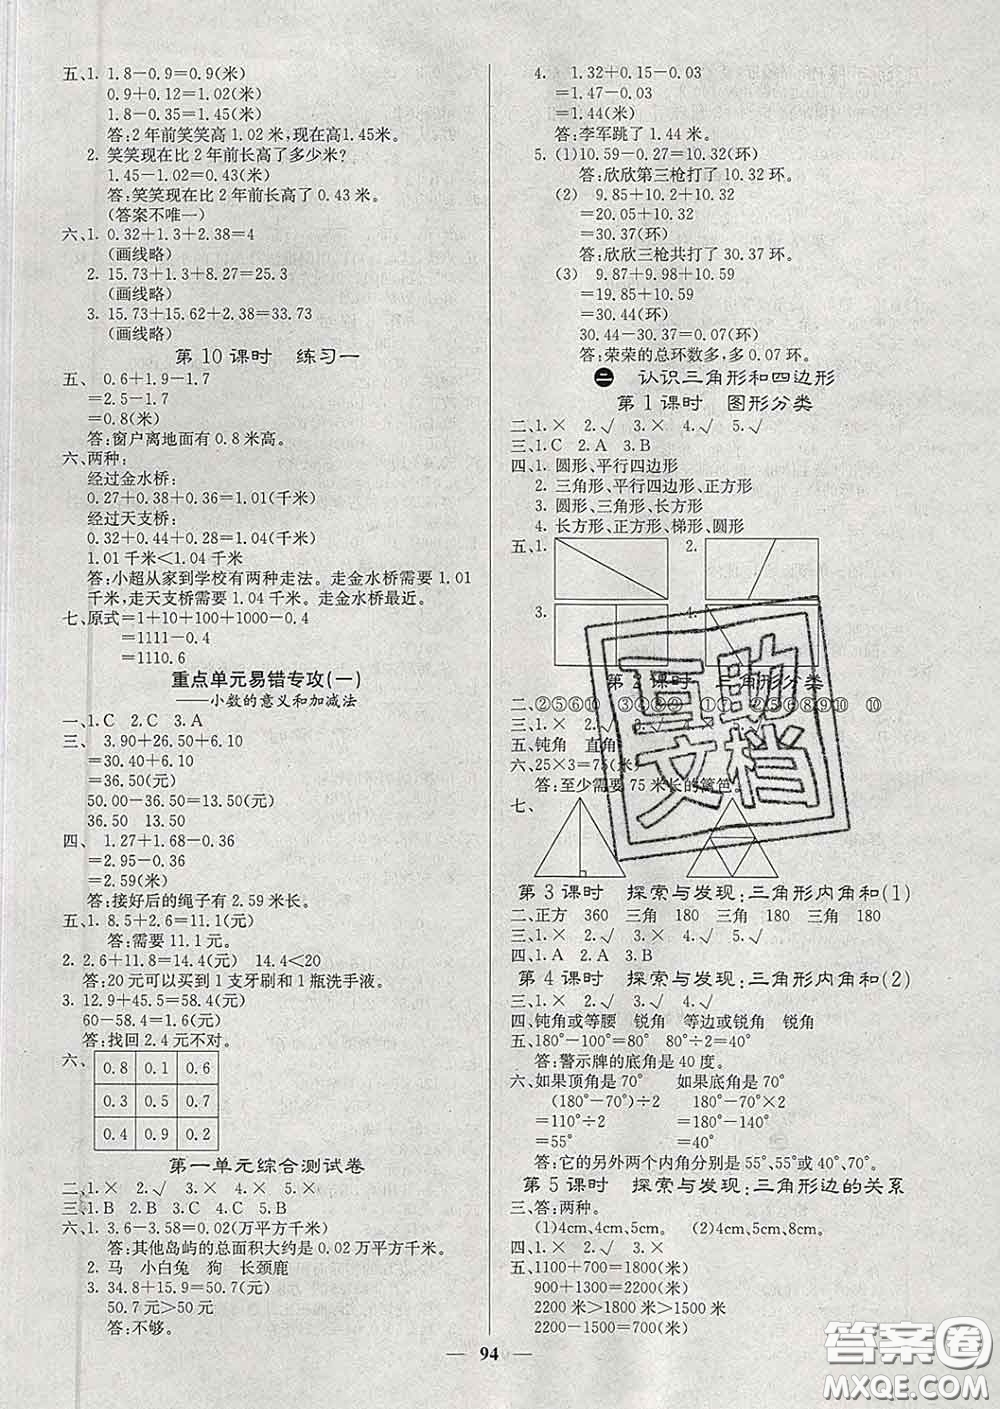 五、1. 1.8－0.9＝0.9(米)
0.9＋0.12＝1.02(米)
1.8－0.35＝1.45(米)
答:2年前笑笑高1.02米,现在高1.45米。
2. 笑笑现在比2年前长高了多少米?
1.45－1.02＝0.43(米)
答:笑笑现在比2年前长高了0.43米。
(答案不唯一)
六、1. 0.32＋1.3＋2.38＝4
(画线略)
2. 15.73＋1.3＋8.27＝25.3
(画线略)
3. 15.73＋15.62＋2.38＝33.73
(画线略)
第10课时 练习一
五、 0.6＋1.9－1.7
＝2.5－1.7
＝0.8(米)
答:窗户离地面有0.8米高。
六、两种:
经过金水桥:
0.27＋0.38＋0.36＝1.01(千米)
经过天支桥:
0.32＋0.44＋0.28＝1.04(千米)
1.01千米＜1.04千米
答:小超从家到学校有两种走法。走金水桥需要1.01
千米,走天支桥需要1.04千米。走金水桥最近。
七、原式＝1＋10＋100＋1000－0.4
＝1111－0.4
＝1110.6
重点单元易错专攻(一)
——小数的意义和加减法
一、1.C 2.C 3.A
三、 3.90＋26.50＋6.10
＝30.40＋6.10
＝36.50(元)
50.00－36.50＝13.50(元)
36.50 13.50
四、 1.27＋1.68－0.36
＝2.95－0.36
＝2.59(米)
答:接好后的绳子有2.59米长。
五、1. 8.5＋2.6＝11.1(元)
答:需要11.1元。
2. 2.6＋11.8＝14.4(元) 14.4＜20
答:20元可以买到1支牙刷和1瓶洗手液。
3. 12.9＋45.5＝58.4(元)
60－58.4＝1.6(元)
答:找回2.4元不对。
六、
0.8 0.1 0.6
0.3 0.5 0.7
0.4 0.9 0.2
第一单元综合测试卷
二、1.× 2.√ 3.× 4.× 5.×
三、1.B 2.B 3.C 4.C 5.C
六、1. 3.6－3.58＝0.02(万平方千米)
答:其他岛屿的总面积大约是0.02万平方千米。
2. 马 小白兔 狗 长颈鹿
3. 34.8＋15.9＝50.7(元)
50.7元＞50元
答:不够。
4. 1.32＋0.15－0.03
＝1.47－0.03
＝1.44(米)
答:李军跳了1.44米。
5. (1)10.59－0.27＝10.32(环)
答:欣欣第三枪打了10.32环。
(2) 9.85＋10.2＋10.32
＝20.05＋10.32
＝30.37(环)
答:欣欣三枪共打了30.37环。
(3) 9.87＋9.98＋10.59
＝19.85＋10.59
＝30.44(环)
30.44－30.37＝0.07(环)
答:荣荣的总环数多,多0.07环。
二 认识三角形和四边形
第1课时 图形分类
二、1.× 2.√ 3.× 4.√ 5.√
三、1.C 2.A 3.B
四、1. 圆形、平行四边形
2. 三角形、平行四边形、正方形
3. 圆形、三角形、长方形
4. 长方形、正方形、梯形、圆形
五、1. 2.
3. 4.
第2课时 三角形分类
二、②⑤⑥⑩ ⑩
三、1.× 2.√
五、钝角 直角
六、25×3＝75(米)
答:至少需要75米长的篱笆。
七、
第3课时 探索与发现:三角形内角和(1)
二、正方 360 三角 180 三角 180 三角 180
三、1.× 2.√ 3.× 4.× 5.√
四、1.A 2.A 3.B
第4课时 探索与发现:三角形内角和(2)
三、1.× 2.√ 3.√ 4.× 5.√
四、钝角或等腰 锐角 等边或锐角 锐角
五、180°－100°＝80° 80°÷2＝40°
答:警示牌的底角是40度。
六、如果顶角是70° 如果底角是70°
(180°－70°)÷2 180°－70°×2
＝110°÷2 ＝180°－140°
＝55° ＝40°
答:它的另外两个内角分别是55°、55°或40°、70°。
第5课时 探索与发现:三角形边的关系
三、答:两种。
(1)4cm、4cm、5cm。 (2)4cm、5cm、8cm。
四、1.× 2.√ 3.×
五、1100＋700＝1800(米)
900＋1300＝2200(米)
2200米＞1800米＞1500米
2200－1500＝700(米)
94
互助
文档
答案圈
MXQE.COM